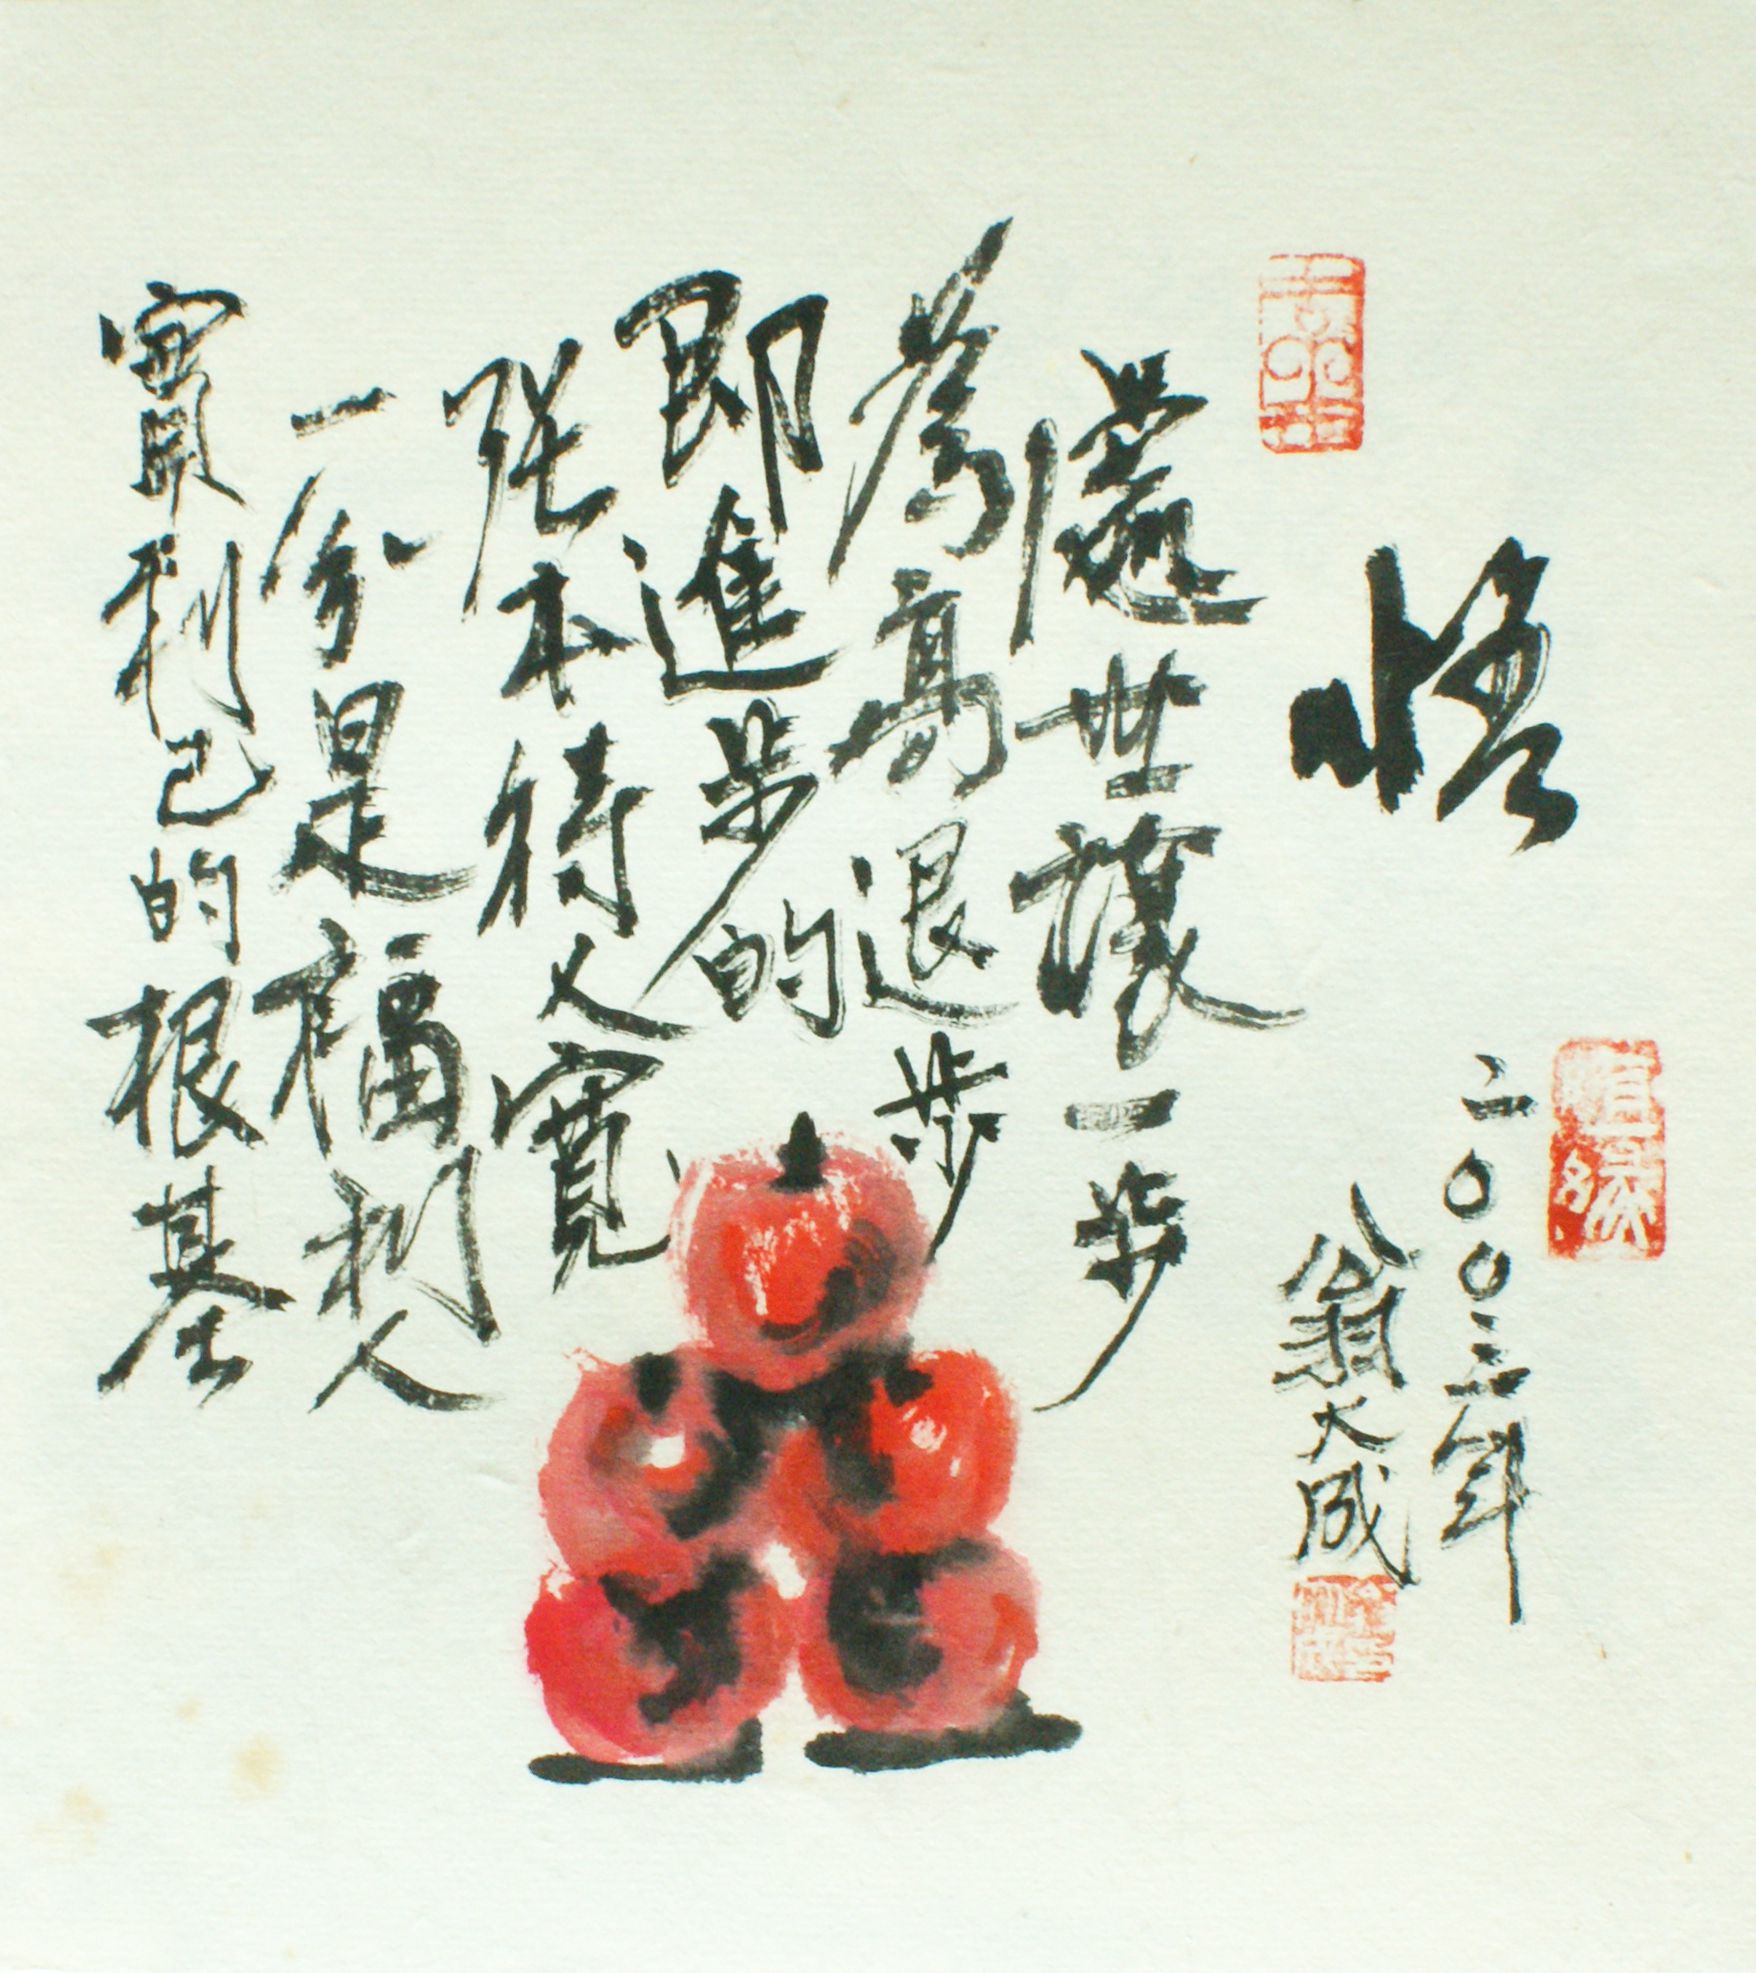 悟
處世讓一步
為高退步
即進步的
張本待人寬
一分是福利人
實利己的根基
二00三年
翁大成